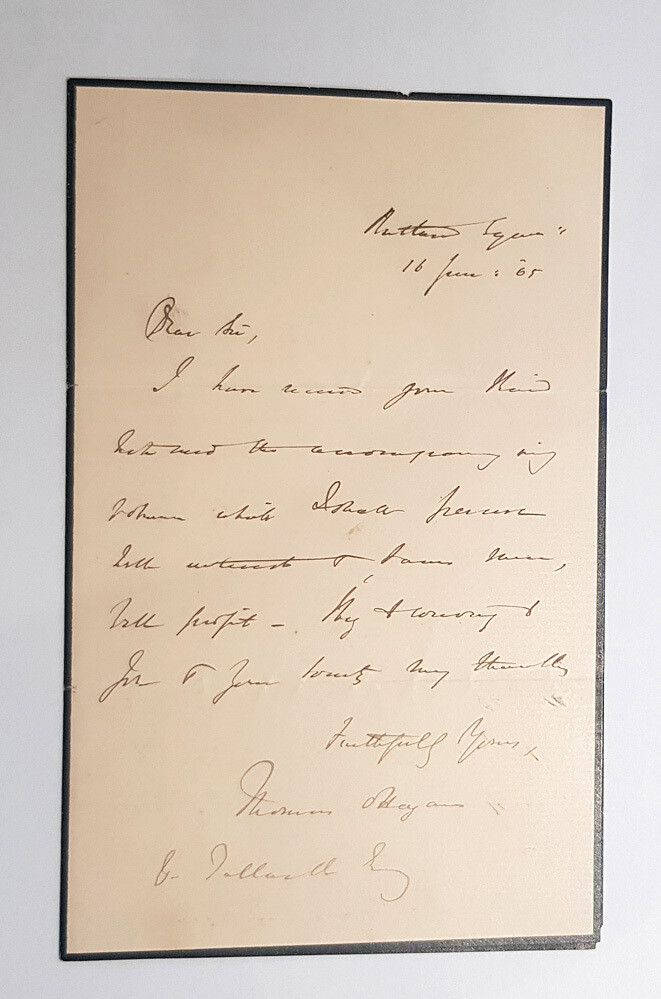 Rutland Square
16 June : 65
Dear Sir,
I have received your kind
note and the accompanying
volume which I shall peruse
with interest & I am sure,
with profit -
You & your Society my thanks
Faithfully Yours,
Thomas O'Hagan
Esq